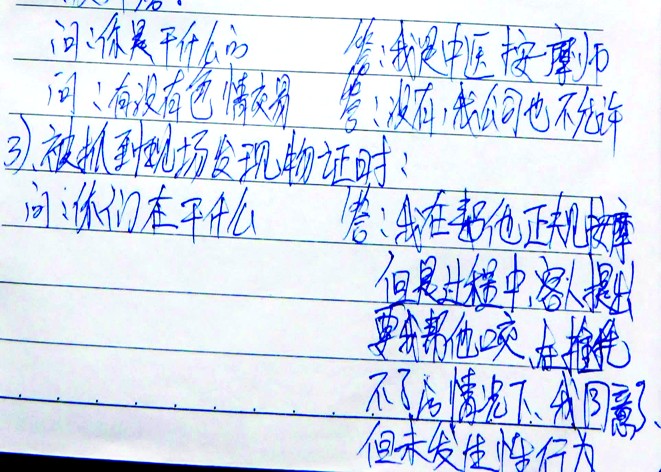 问:你是干什么的 答:我是中医按摩师
问:有没有色情交易 答:没有,我公司也不允许
3)、被抓到现场发现物证时:
问:你们在干什么 答:我在帮他正规按摩
但是过程中,客人提出
要我帮他咬,在推脱
不了的情况下、我同意了、
但未发生性行为